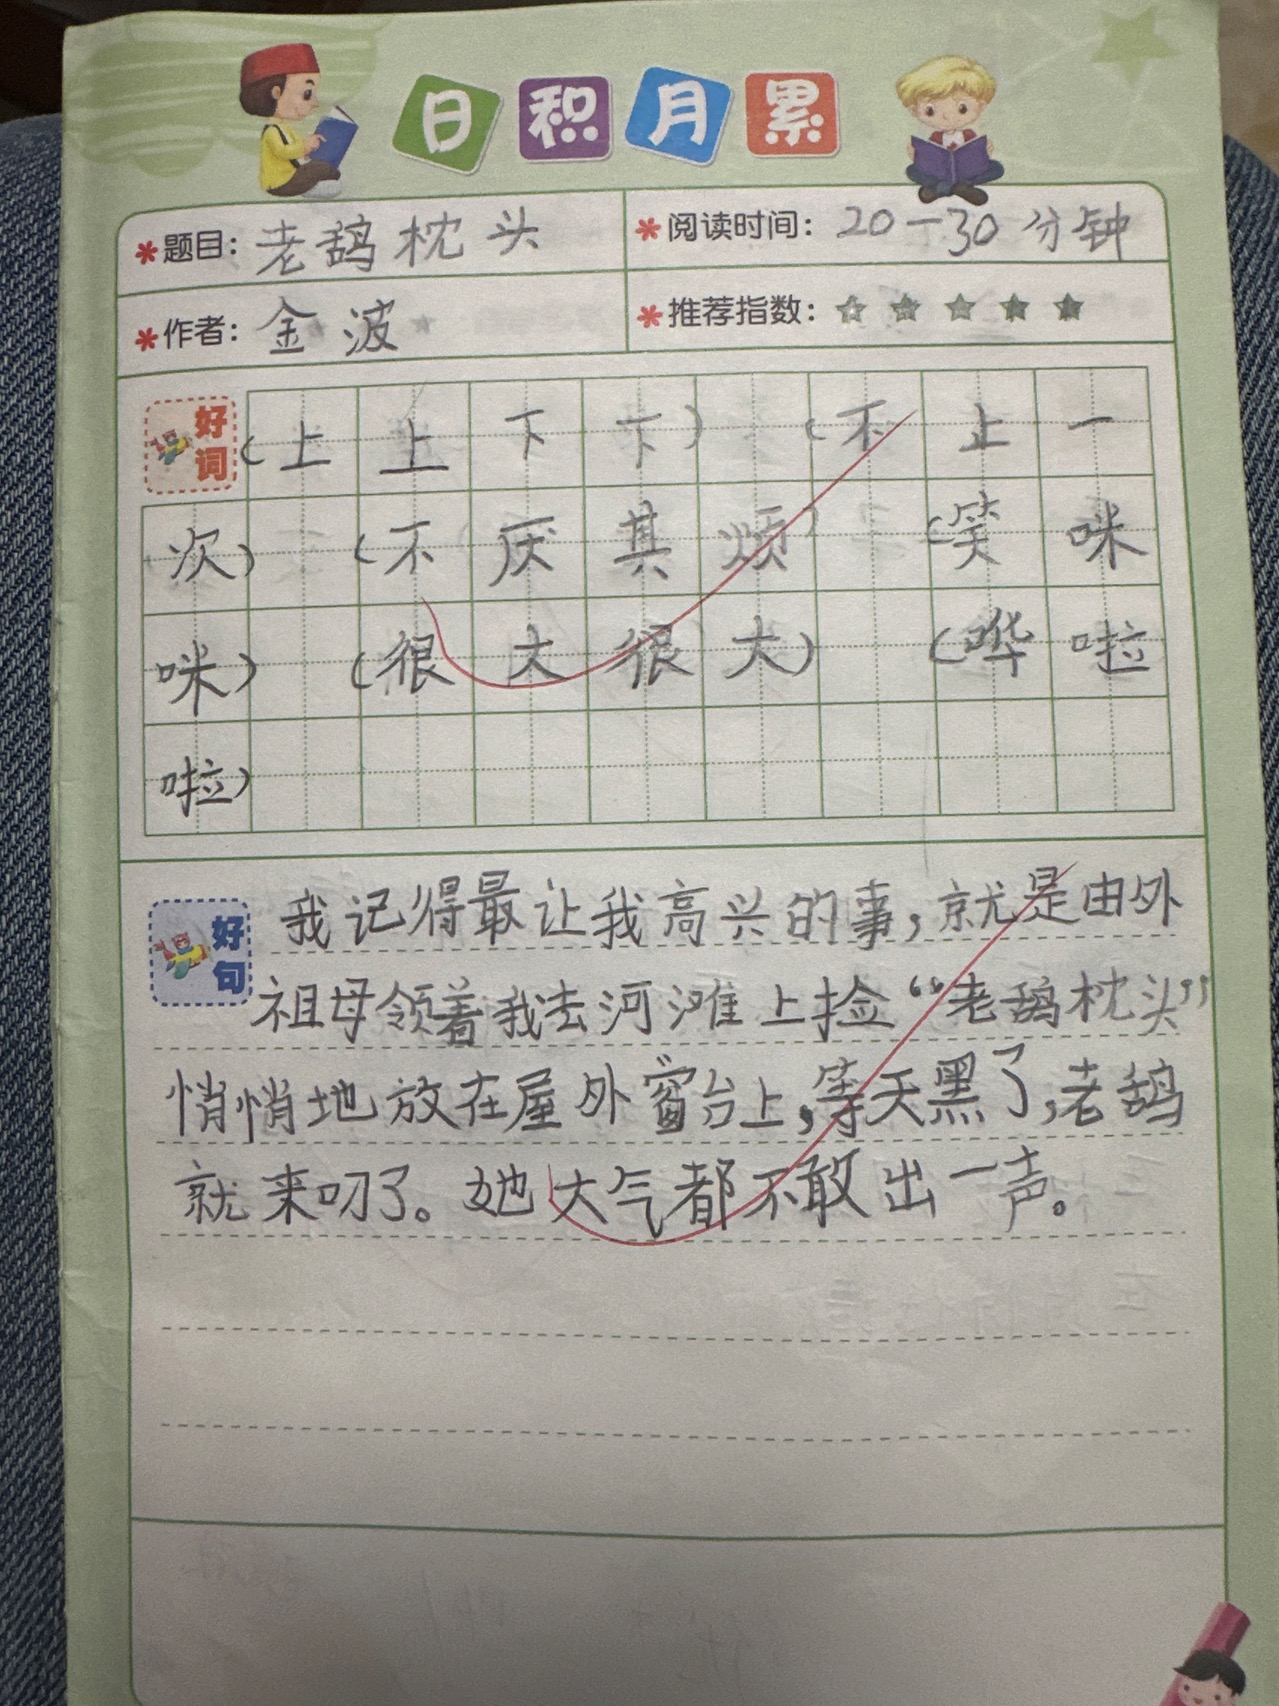 日积月累
题目：老鸹枕头
阅读时间：20—30分钟
作者：金波
推荐指数：
好词
(上上下下) (不止一
次) (不厌其烦) (笑咪
咪) (很大很大) (哗啦
啦)
好句
我记得最让我高兴的事，就是由外
祖母领着我去河滩上捡“老鸹枕头”
悄悄地放在屋外窗台上，等天黑了，老鸹
就来叼了。她大气都不敢出一声。